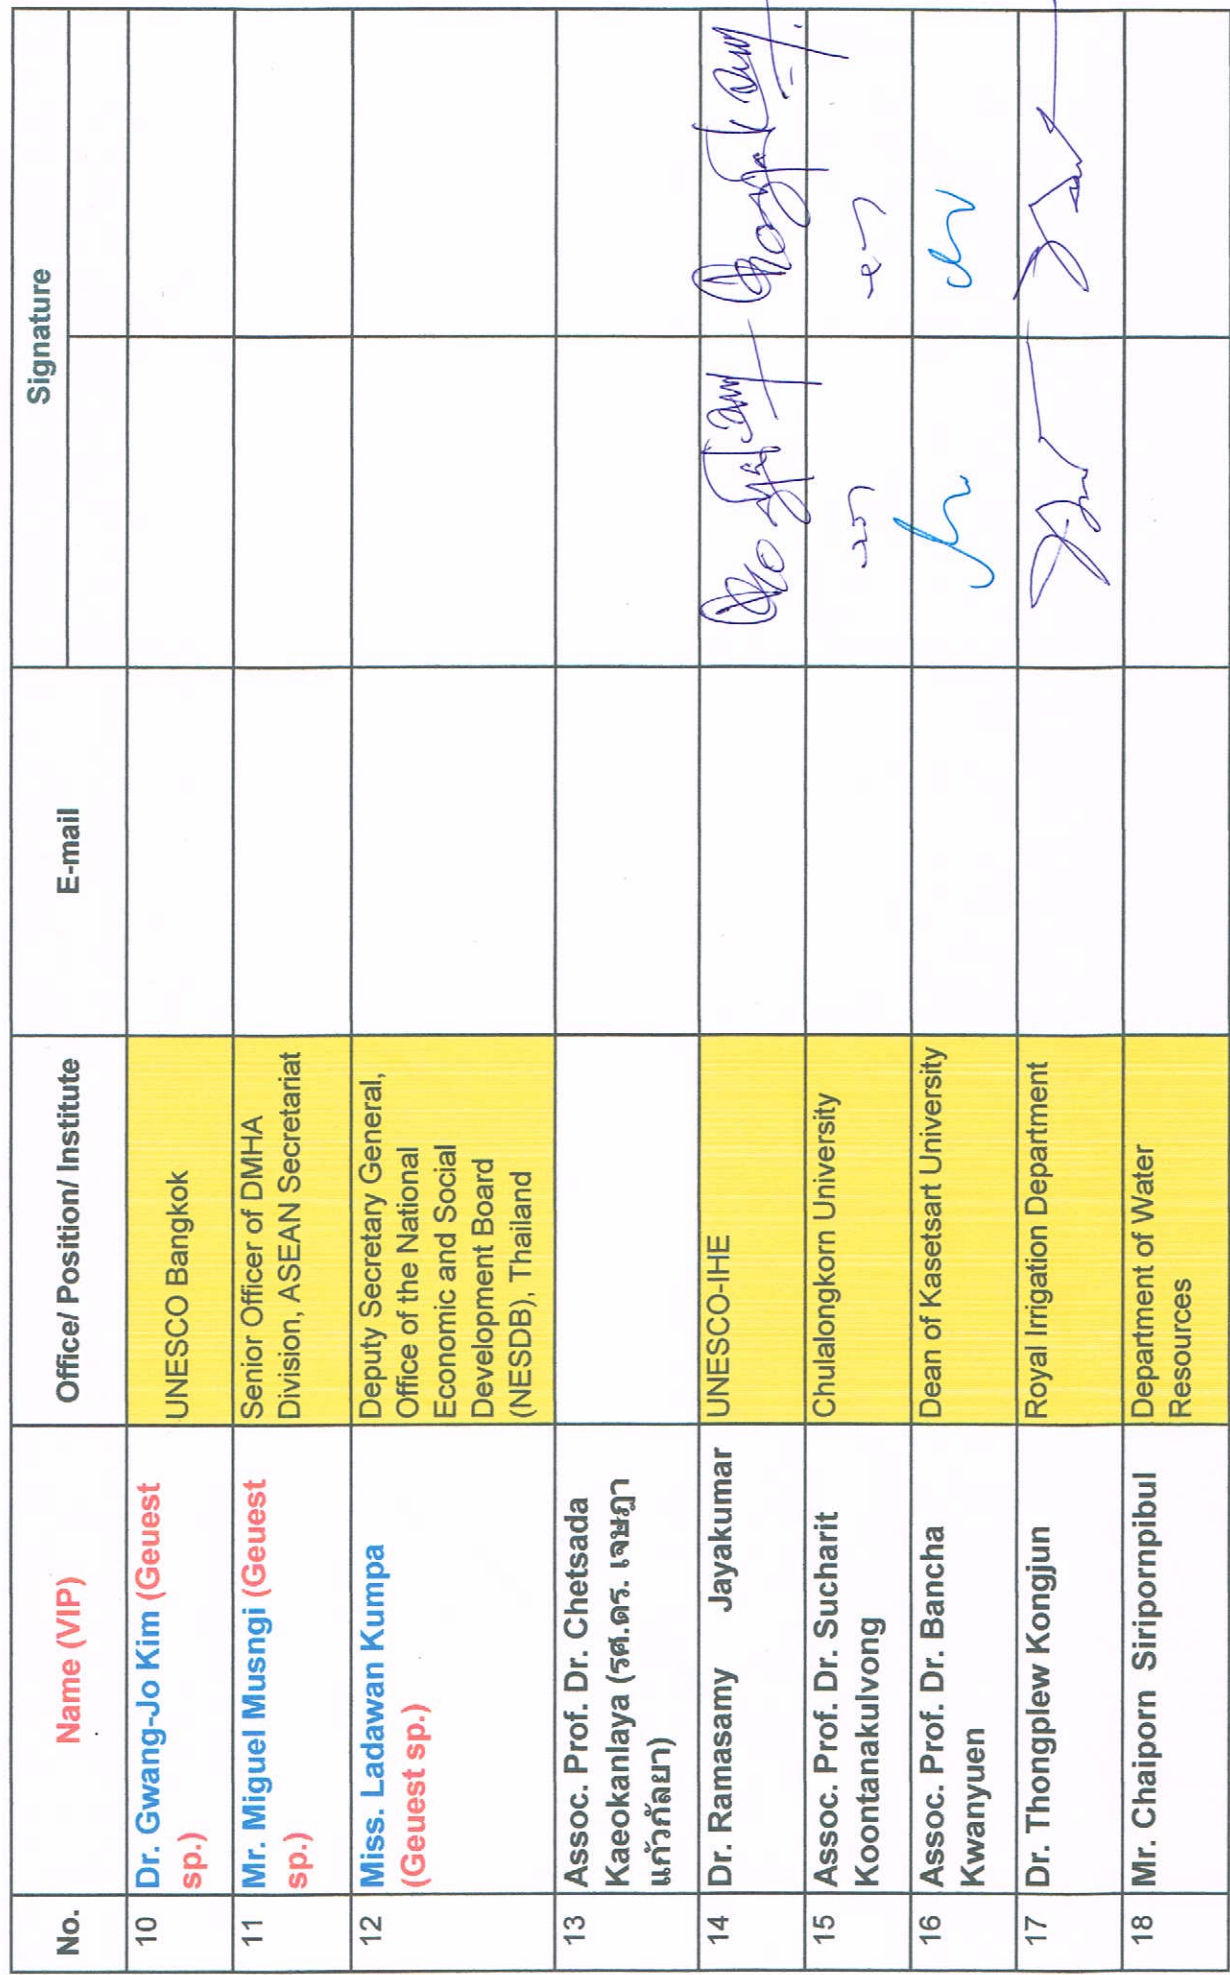 No.
Name (VIP)
Office/ Position/ Institute
E-mail
Signature
10
Dr. Gwang-Jo Kim (Geuest
sp.)
UNESCO Bangkok
11
Mr. Miguel Musngi (Geuest
sp.)
Senior Officer of DMHA
Division, ASEAN Secretariat
12
Miss. Ladawan Kumpa
(Geuest sp.)
Deputy Secretary General,
Office of the National
Economic and Social
Development Board
(NESDB), Thailand
13
Assoc. Prof. Dr. Chetsada
Kaeokanlaya (รศ.ดร. เจษฎา
แก้วกัลยา)
14
Dr. Ramasamy Jayakumar
UNESCO-IHE
15
Assoc. Prof. Dr. Sucharit
Koontanakulvong
Chulalongkorn University
16
Assoc. Prof. Dr. Bancha
Kwanyuen
Dean of Kasetsart University
17
Dr. Thongplew Kongjun
Royal Irrigation Department
18
Mr. Chaiporn Siripornpibul
Department of Water
Resources